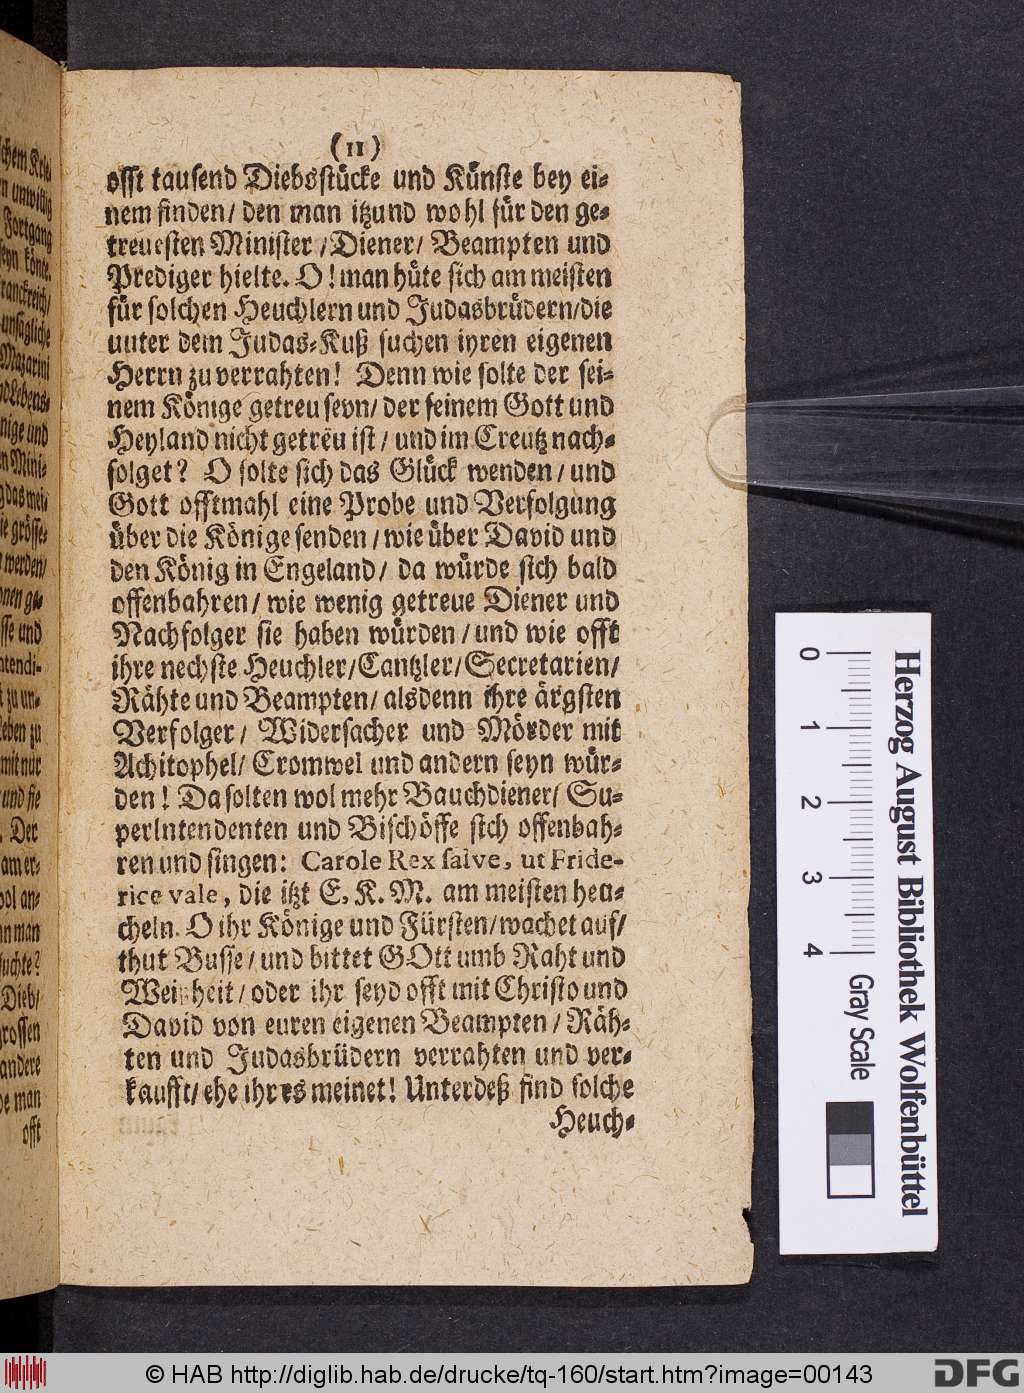 (11)
offt tausend Diebsstücke und Künste bey ei-
nem finden/ den man itzund wohl für den ge-
treuesten Minister /Diener/ Beampten und
Prediger hielte. O! man hüte sich am meisten
für solchen Heuchlern und Judasbrüdern/die
unter dem Judas-Kuß suchen ihren eigenen
Herrn zu verrahten! Denn wie solte der sei-
nem Könige getreu seyn/ der seinem Gott und
Heyland nicht getreu ist / und im Creutz nach-
folget? O solte sich das Glück wenden / und
Gott offtmahl eine Probe und Verfolgung
über die Könige senden / wie über David und
den König in Engeland/ da würde sich bald
offenbahren/ wie wenig getreue Diener und
Nachfolger sie haben würden / und wie offt
ihre nechste Heuchler/Cantzler/Secretarien/
Rähte und Beampten/ alsdenn ihre ärgsten
Verfolger/ Widersacher und Mörder mit
Achitophel/ Cromwel und andern seyn wür-
den! Da solten wol mehr Bauchdiener/ Su-
perIntendenten und Bischöffe sich offenbah-
ren und singen: Carole Rex salve, ut Fride-
rice vale, die itzt E. K. M. am meisten heu-
cheln. O ihr Könige und Fürsten/wachet auf/
thut Busse/ und bittet GOtt umb Raht und
Weißheit/ oder ihr seyd offt mit Christo und
David von euren eigenen Beampten / Räh-
ten und Judasbrüdern verrahten und ver-
kaufft/ ehe ihr es meinet! Unterdeß sind solche
Heuch-
Herzog August Bibliothek Wolfenbüttel
0 1 2 3 4 Gray Scale
© HAB http://diglib.hab.de/drucke/tq-160/start.htm?image=00143
DFG